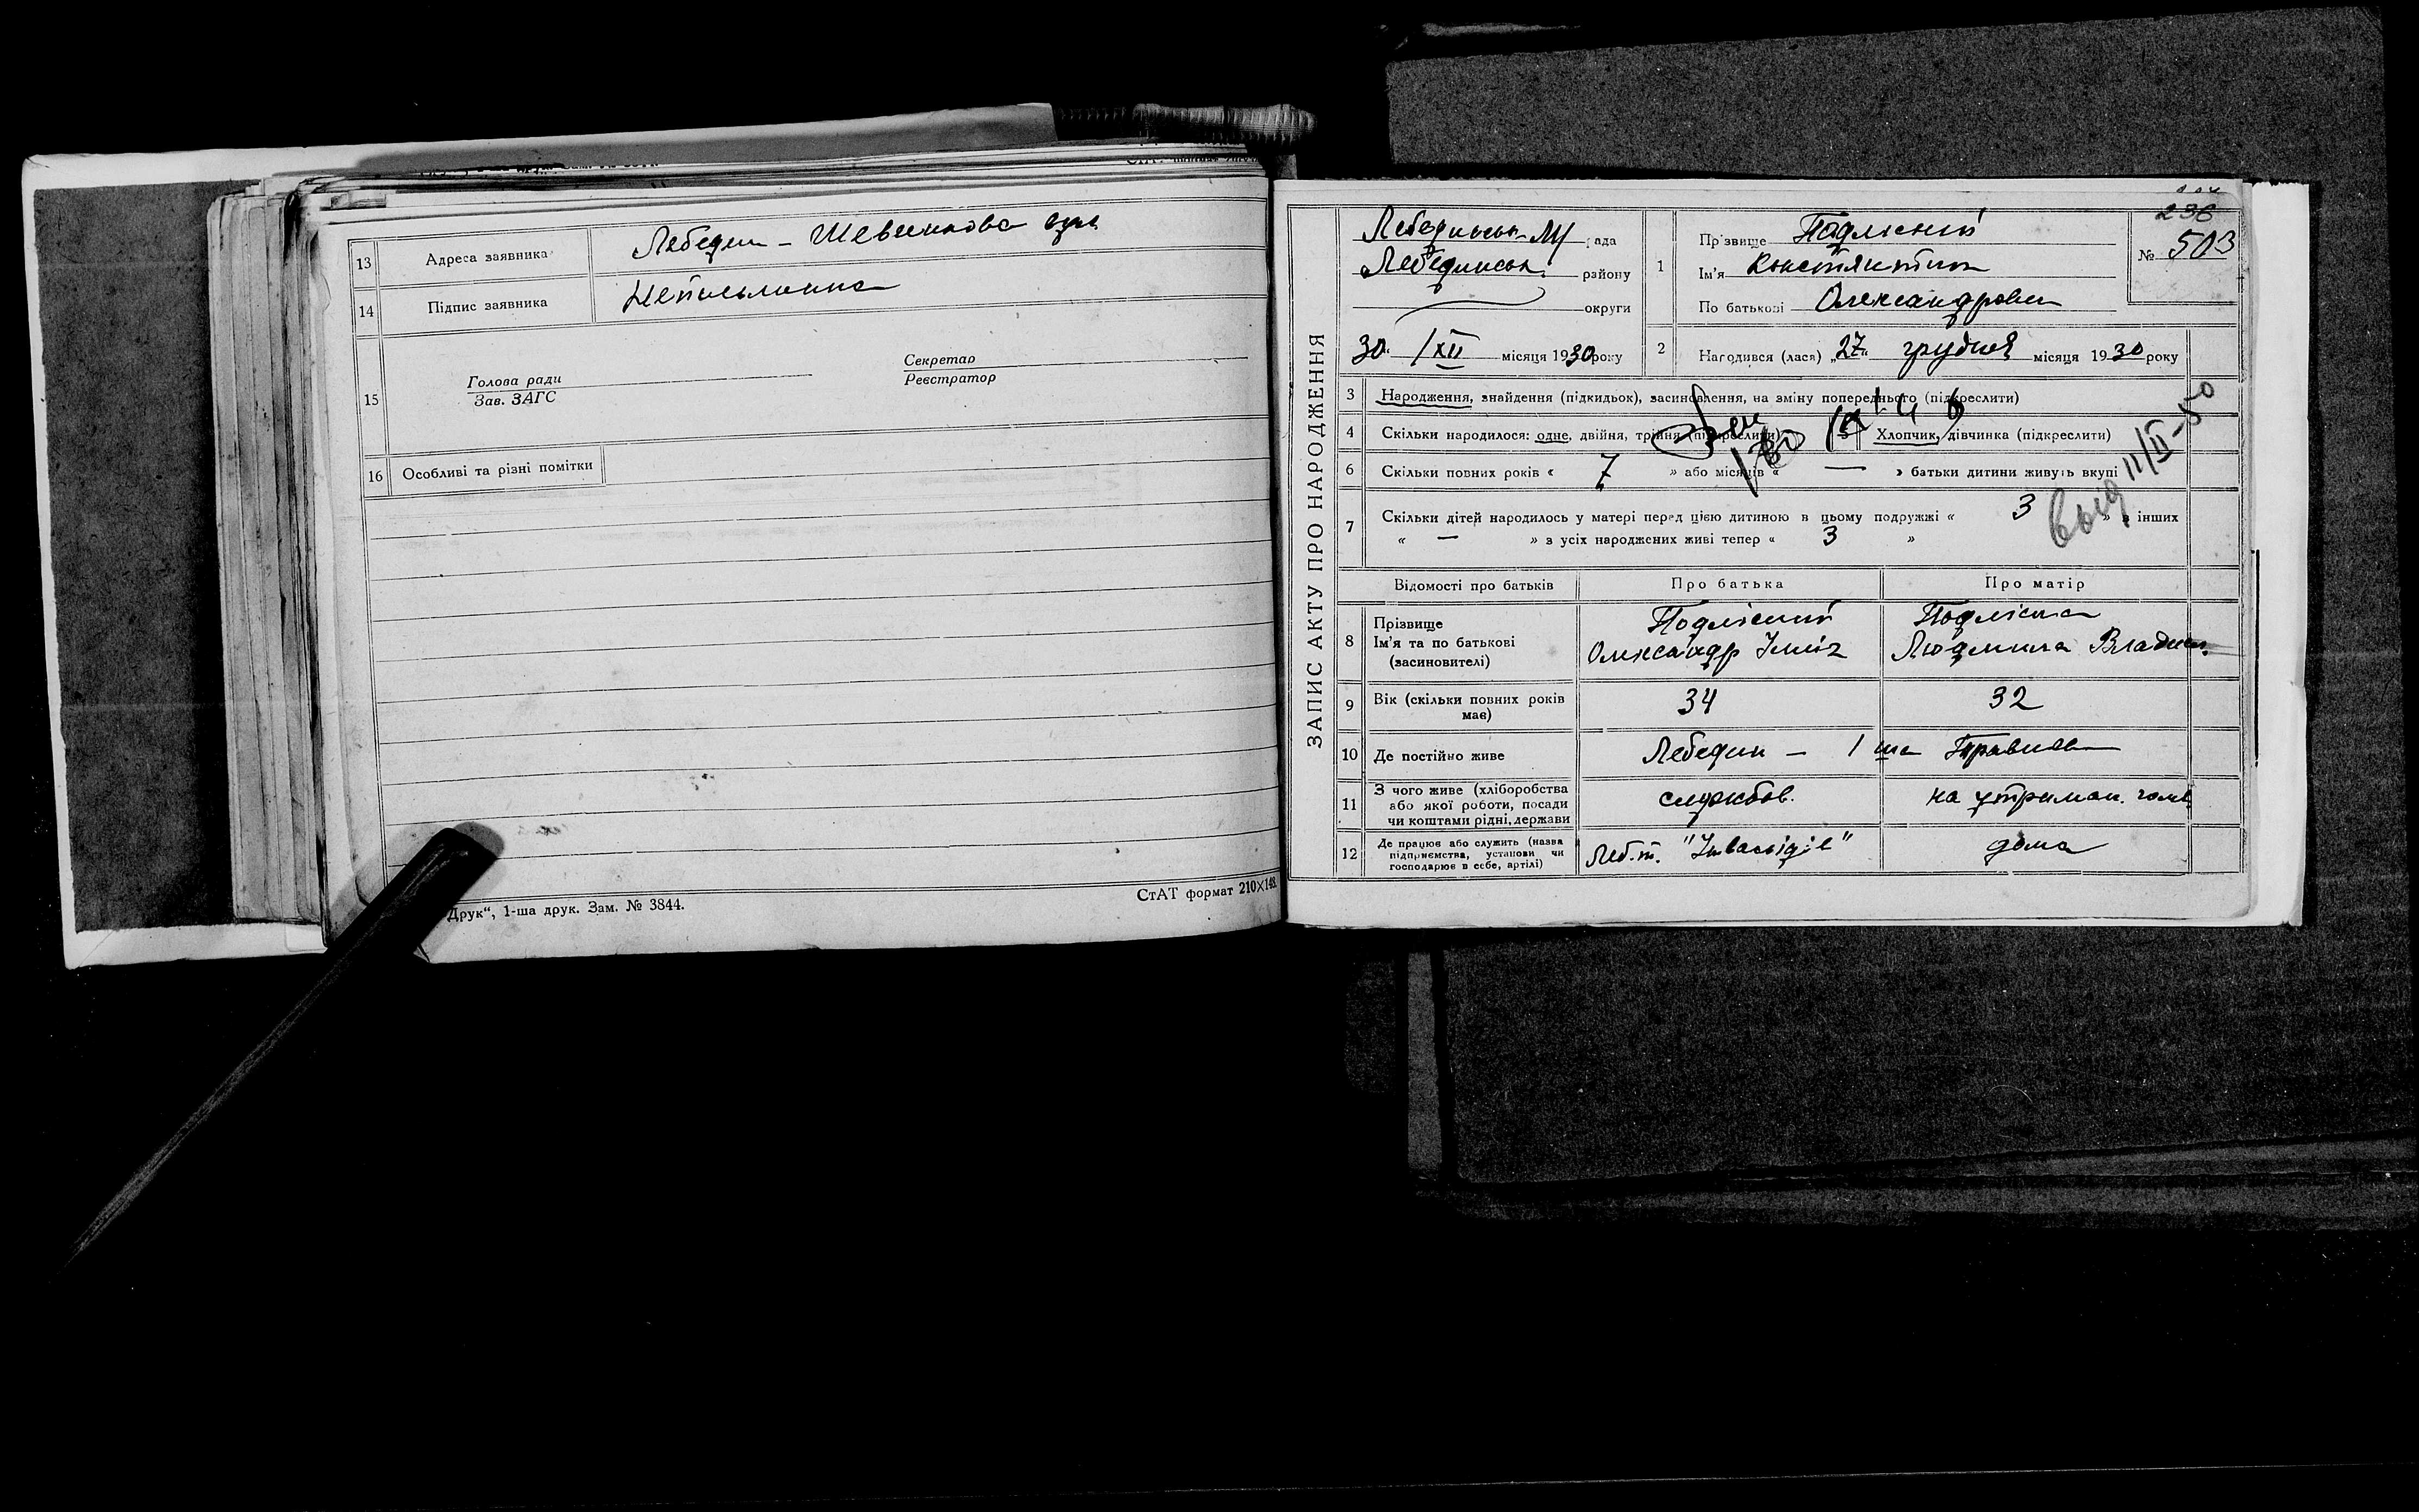 13 Адреса заявника Лебедин – Шевченкова вул
14 Підпис заявника Неписьменна
15 Голова ради
Зав. ЗАГС
Секретар
Реєстратор
16 Особливі та різні помітки
Друк“, 1-ша друк. Зам. № 3844.
СтАТ формат 210×148.
ЗАПИС АКТУ ПРО НАРОДЖЕННЯ
236
№ 503
Лебединськ МУ рада
Лебединськ. району
округи
30 /XII місяця 1930 року
1 Прізвище Подлісний
Ім'я Константин
По батькові Олександрович
2 Народився (лася) „27“ грудня місяця 1930 року
3 Народження, знайдення (підкидьок), засиновлення, на зміну попереднього (підкреслити)
4 Скільки народилося: одне, двійня, трійня (підкреслити) 5 Хлопчик, дівчинка (підкреслити)
6 Скільки повних років « 7 » або місяців « — » батьки дитини живуть вкупі
выд 11/II-50
7 Скільки дітей народилось у матері перед цією дитиною в цьому подружжі « 3 » в інших
« — » з усіх народжених живі тепер « 3 »
Відомості про батьків Про батька Про матір
8 Прізвище
Ім'я та по батькові
(засновителі)
Подлісний
Олександр
Подлісна
Людмила Владисл.
9 Вік (скільки повних років
має)
34 32
10 Де постійно живе Лебедин – 1 ша
11 З чого живе (хліборобства
або якої роботи, посади
чи коштами рідні, держави
службов. на утриман. чолов
12 Де працює або служить (назва
підприємства, установи чи
господарює в себе, артілі)
Леб. т. "Інвалідів" дома